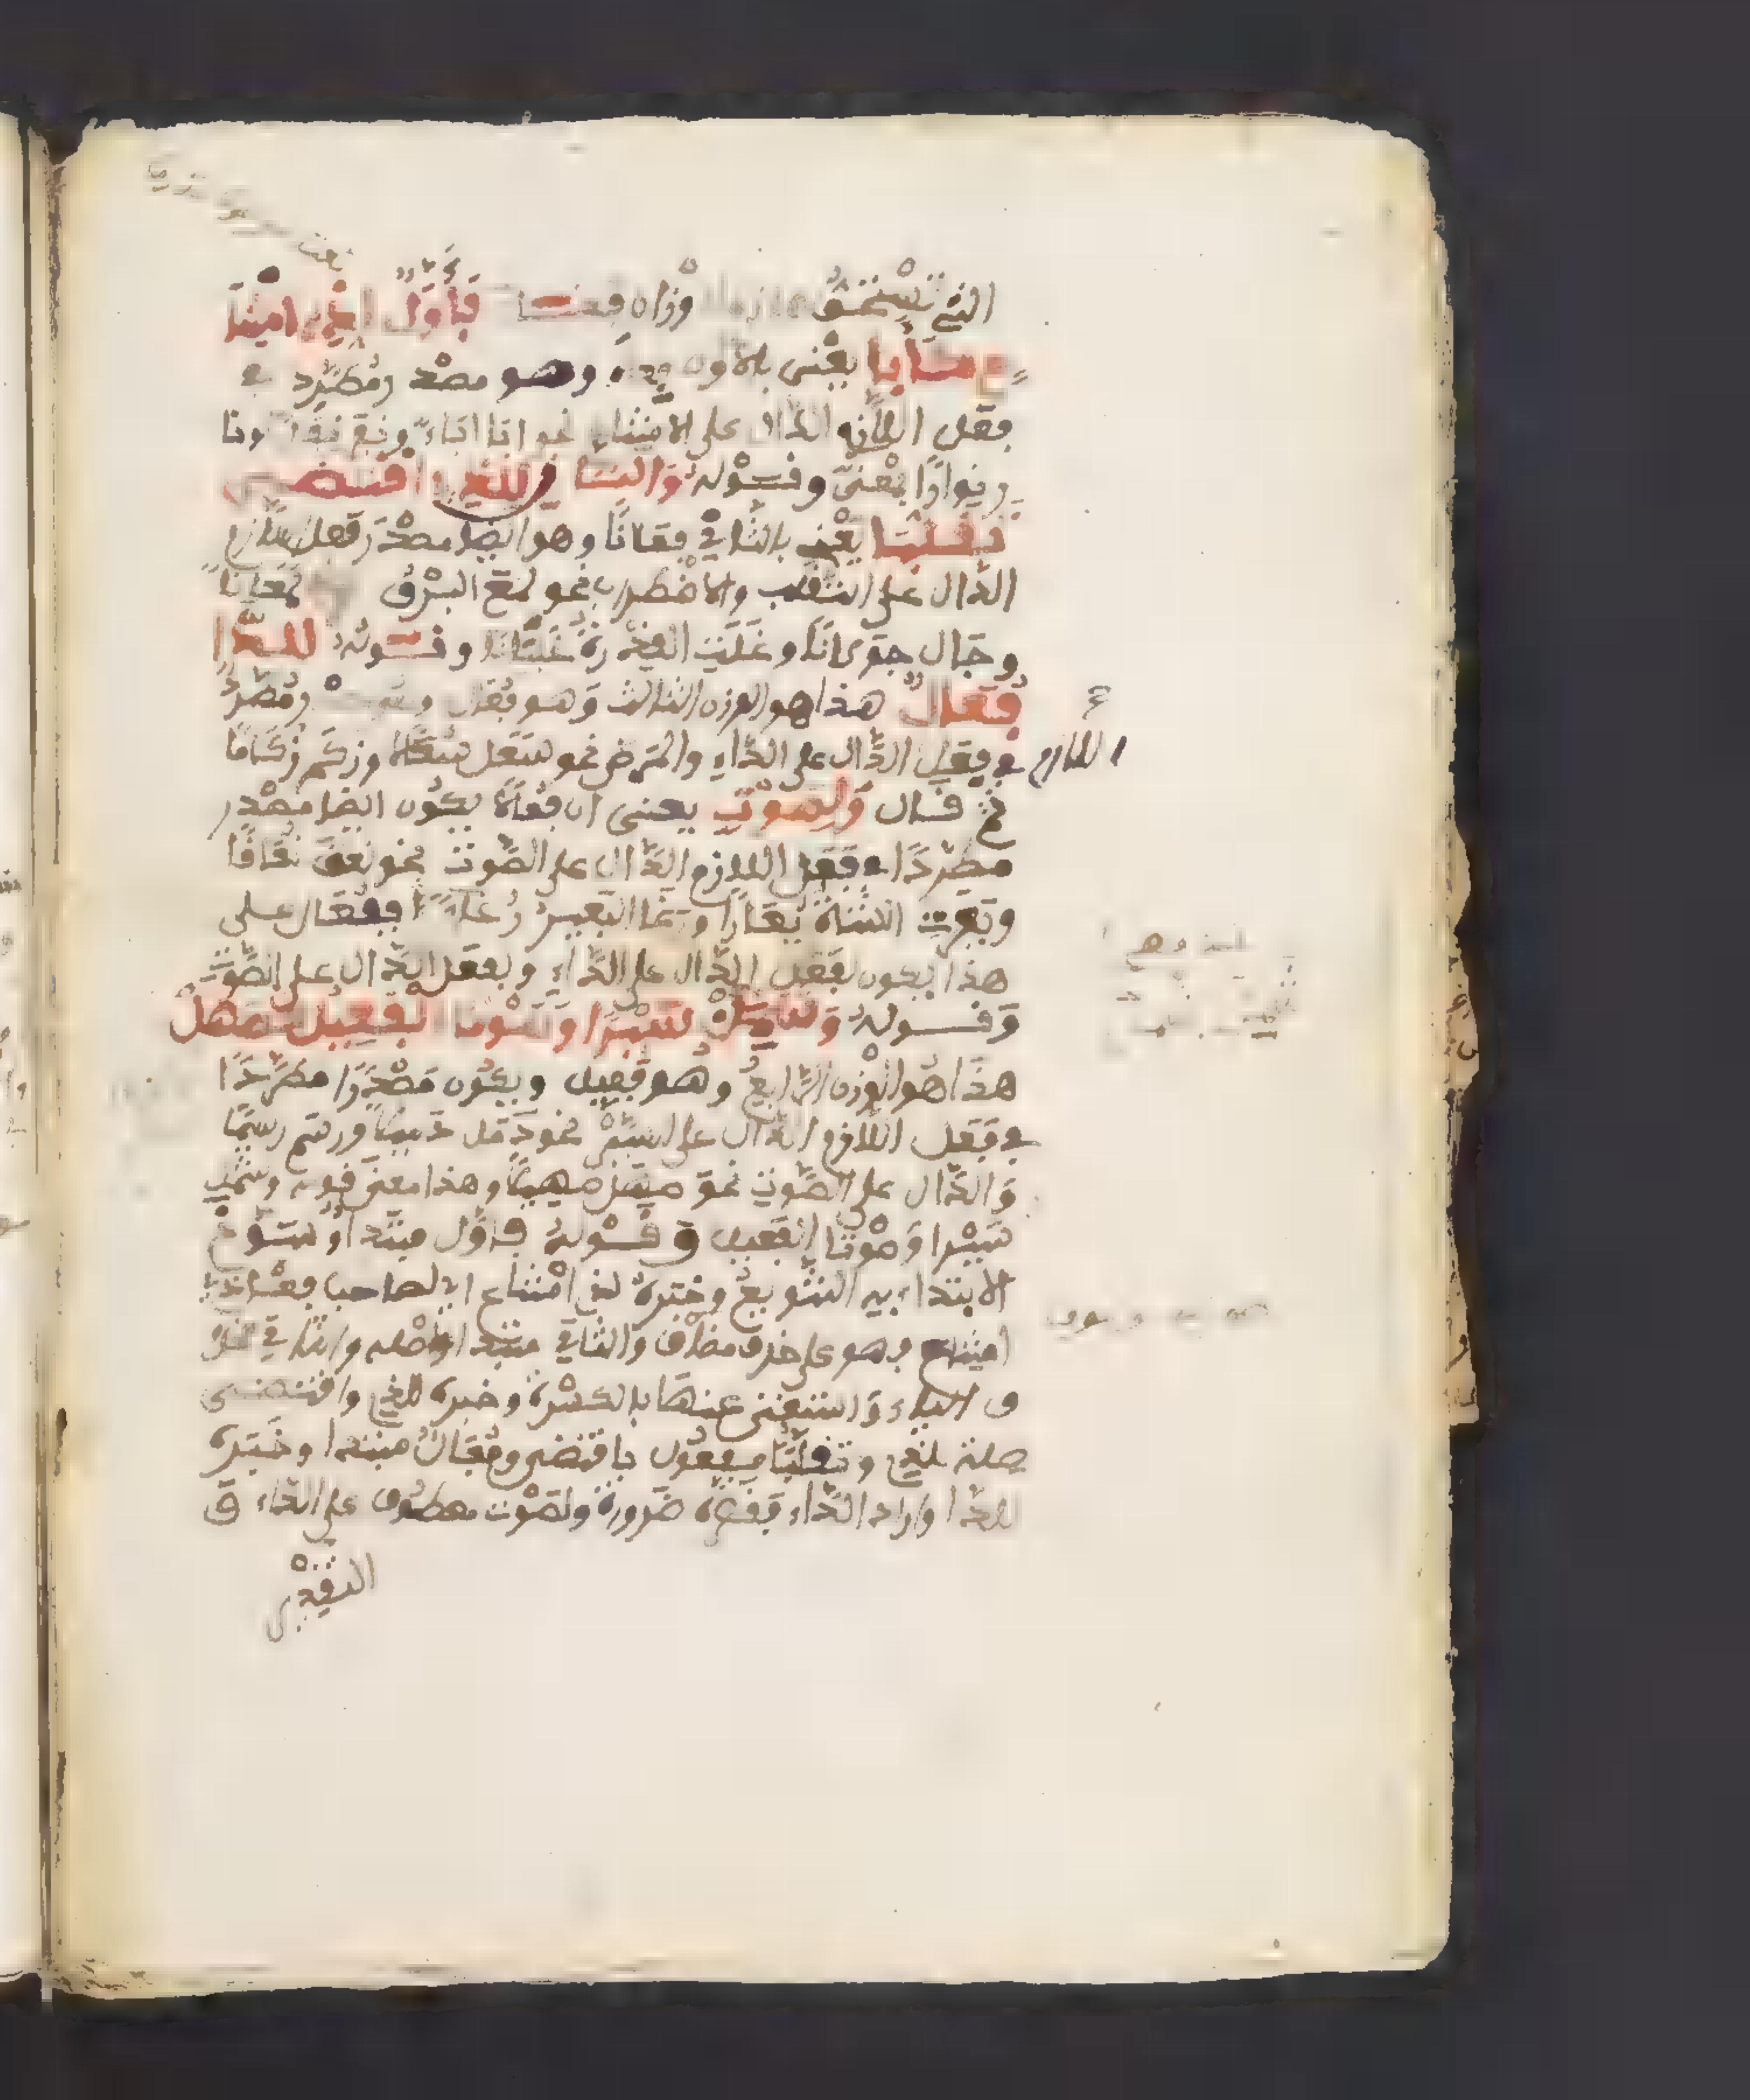 التي تستحق وزان فقال فأول لذي امتنا
ع كأبا يعني بالاول وهو مصدر مطرد في
فعل اللازم الدال على الامتناع نحو ابا اباء ونفر نفارا ونا
ر نوارا بمعنى وقوله والثان للذي اقتضى
تقلبا يعني بالثاني فعلانا وهو ايضا مصدر فعل اللازم
الدال على التقلب والاضطراب نحو لمع البرق لمعانا
وجال جولانا وغلت القدرة غليانا وقوله للدا
فعال هذا هو الوزن الثالث وهو فعال مطرد
في فعل الدال على الداء والمرض نحو سعل سعالا وزكم زكاما
اللازم
ثم قال ولصوت يعني ان فعالا يكون ايضا مصدر
مطردا في فعل اللازم الدال على الصوت نحو نعق نعاقا
وبعرت الشاة يعارا ورغا البعير رغاء ففعال على
هذا يكون لفعل الدال على الداء ولفعل الدال على الصوت
وقوله وشمل سيرا وصوتا الفعيل كصهل
هذا هو الوزن الرابع وهو فعيل ويكون مصدرا مطردا
في فعل اللازم الدال على السير نحو ذمل ذميلا ورسم رسيما
والدال على الصوت نحو صهل صهيلا وهذا معنى قوله وشمل
سيرا وصوتا الفعيل وقوله فاول مبتدا وسوغ
الابتداء به التنويع وخبره لذي امتناع اي لصاحب
امتناع وهو على حذف مضاف والثاني مبتدا واصله والثاني فحذ
ف الياء واستغنى عنها بالكسرة وخبره للذي واقتضى
صلة للذي وتقلبا مفعول باقتضى وفعال مبتدا وخبره
للدا واراد الداء فقصره ضرورة ولصوت معطوف على الداء و
التقدير